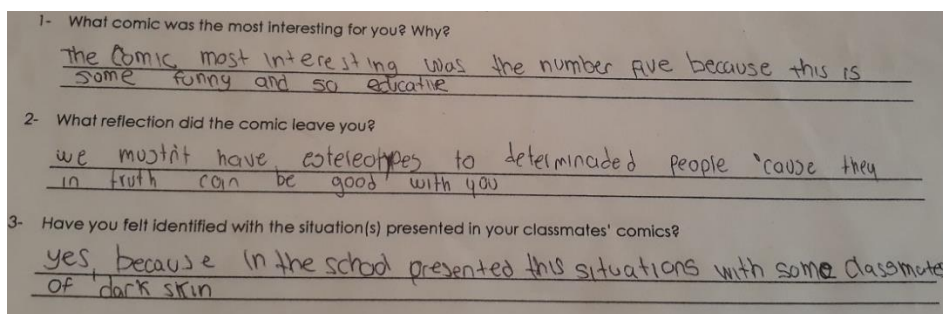 1- What comic was the most interesting for you? Why?
The Comic most interesting was the number five because this is
some funny and so educative
2- What reflection did the comic leave you?
we mustn't have estereotypes to determinaded people 'cause they
in truth can be good with you
3- Have you felt identified with the situation(s) presented in your classmates' comics?
yes, because in the school presented this situations with some classmates
of dark skin